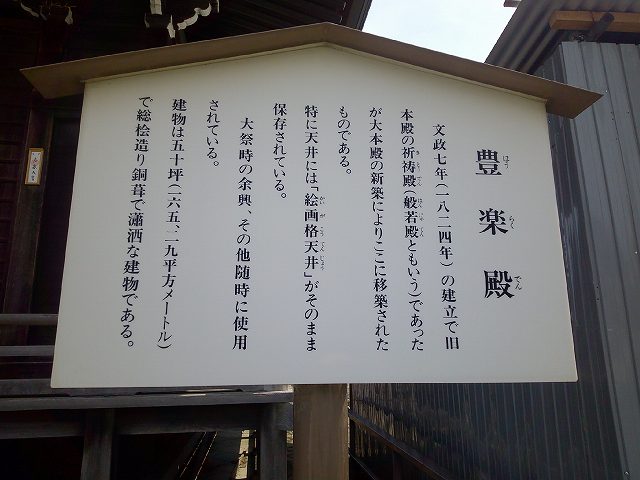 豊楽殿
ほうらくでん
文政七年(一八二四年)の建立で旧
本殿の祈祷殿(般若殿ともいう)であった
が大本殿の新築によりここに移築された
ものである。
特に天井には「絵画格天井」がそのまま
保存されている。
大祭時の余興、その他随時に使用
されている。
建物は五十坪(一六五、二九平方メートル)
で総桧造り銅葺で瀟洒な建物である。